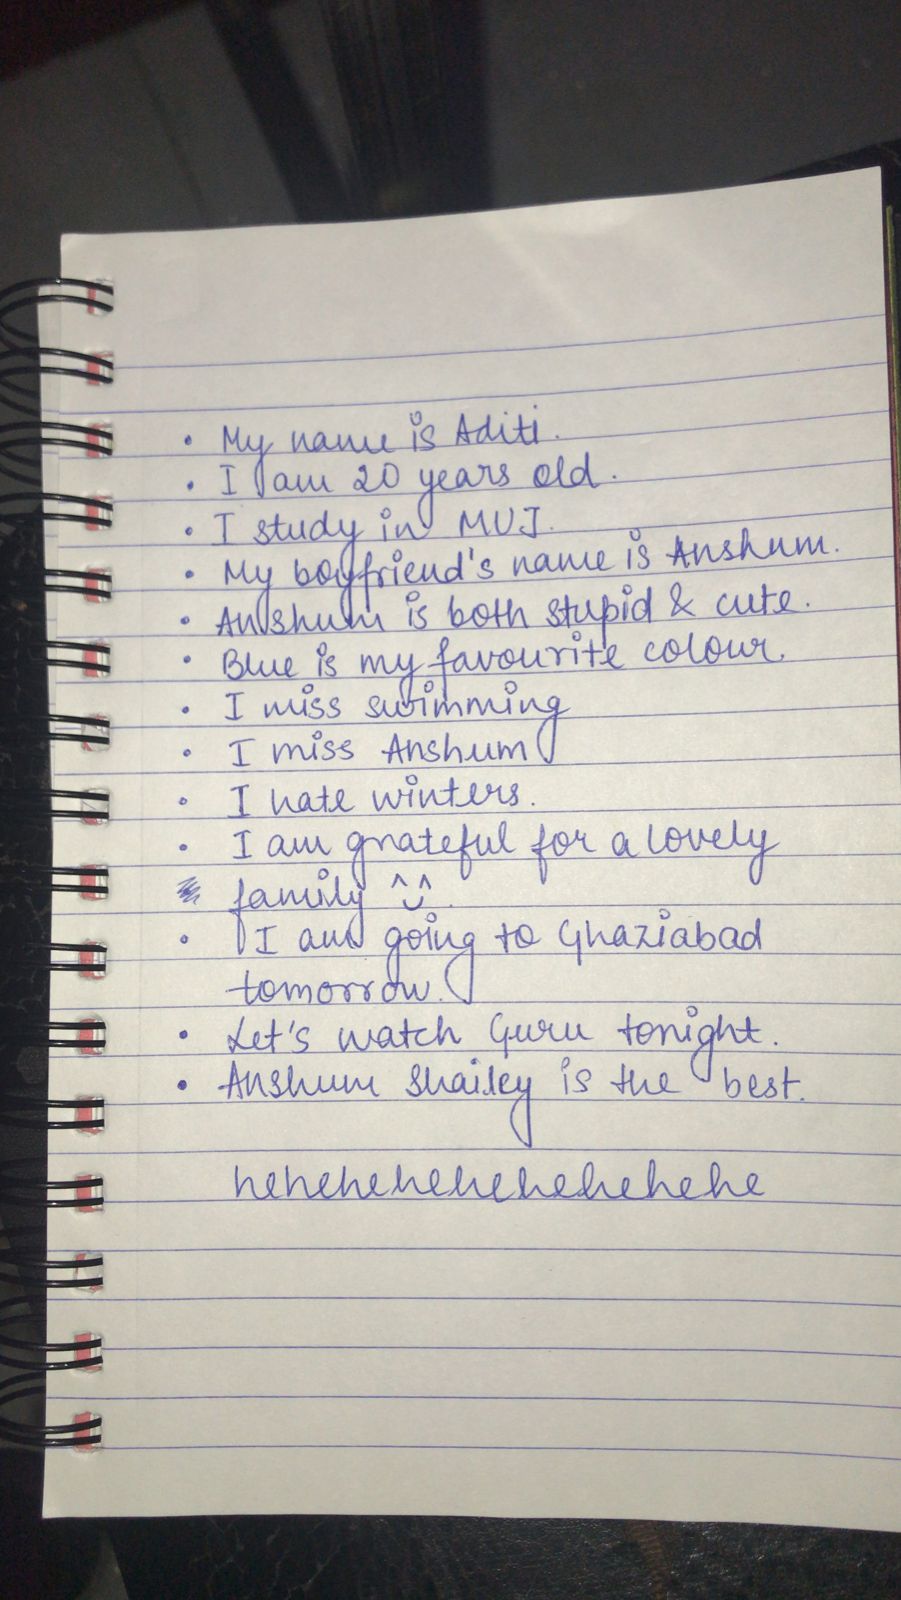 • My name is Aditi.
• I am 20 years old.
• I study in MUJ.
• My boyfriend's name is Anshum.
• Anshum is both stupid & cute.
• Blue is my favourite colour.
• I miss swimming
• I miss Anshum
• I hate winters.
• I am grateful for a lovely
family ^‿^.
• I am going to Ghaziabad
tomorrow.
• Let's watch Guru tonight.
• Anshum Shailey is the best.
hehehehehehehehehe